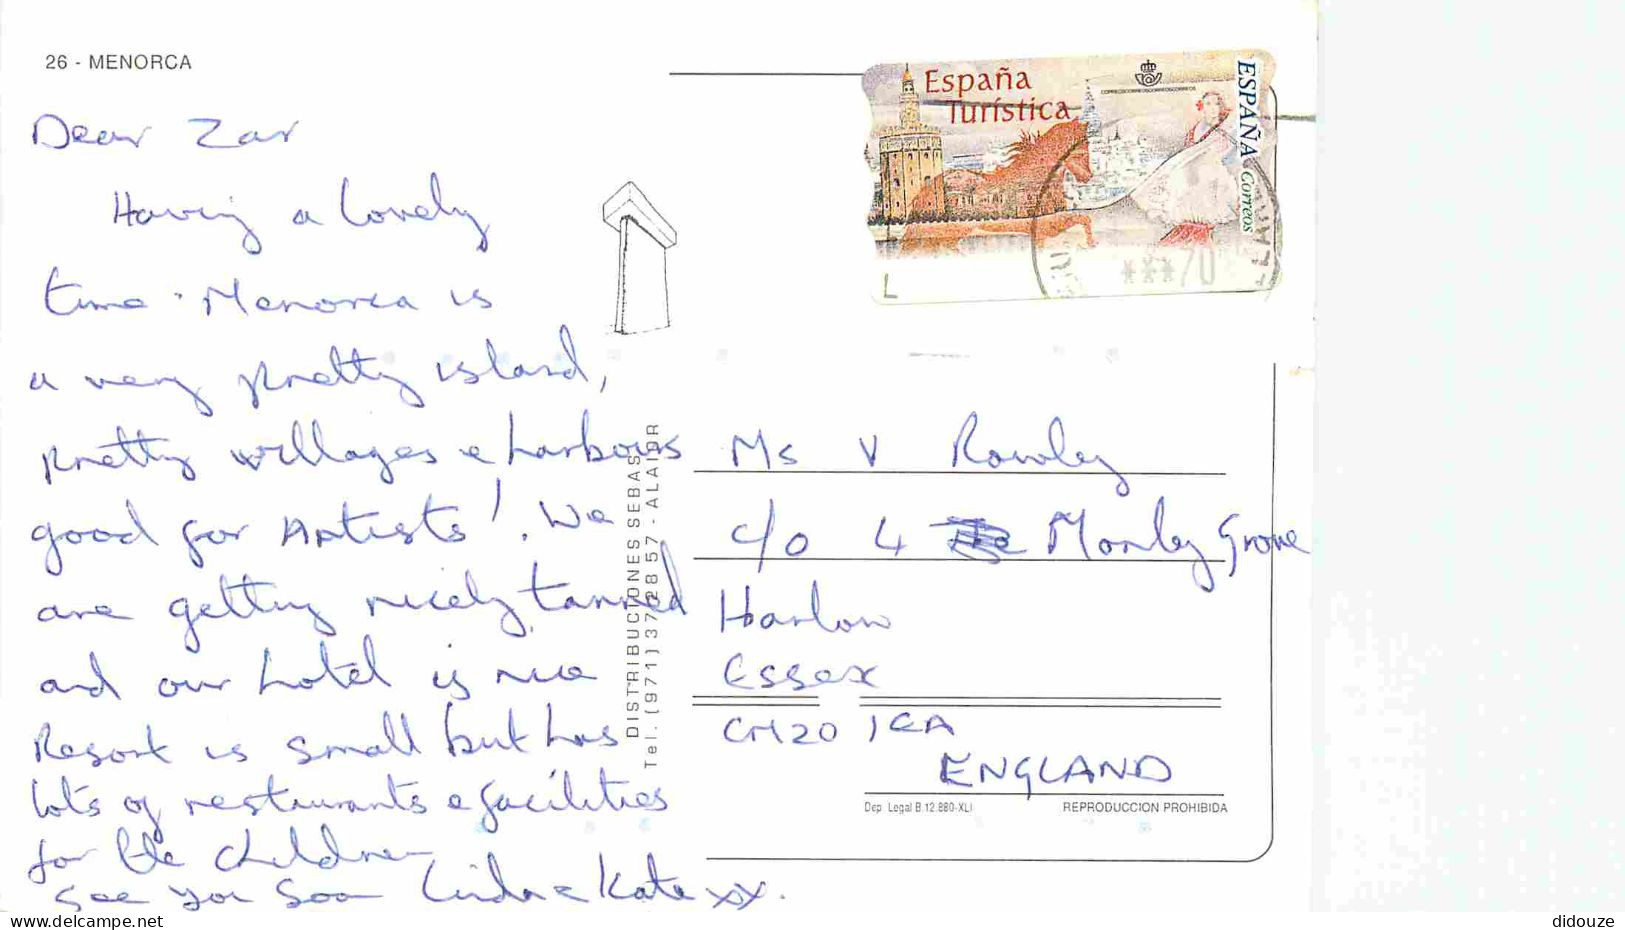 26 - MENORCA
Dear Zar
Having a lovely
time. Menorca is
a very pretty island,
pretty villages & harbours
good for Artists! We
are getting nicely tanned
and our hotel is nice
Resort is small but has
lots of restaurants & facilities
for the children
See you soon Linda & Kate xx.
España
Turística
ESPAÑA
Correos
***70
L
DISTRIBUCIONES SEBAS
- ALAIOR
Ms V Rowley
c/o 4 Morley Grove
Harlow
Essex
CM20 1EA
ENGLAND
Dep. Legal B.12.880-XLI
REPRODUCCION PROHIBIDA
delcampe.net
didouze